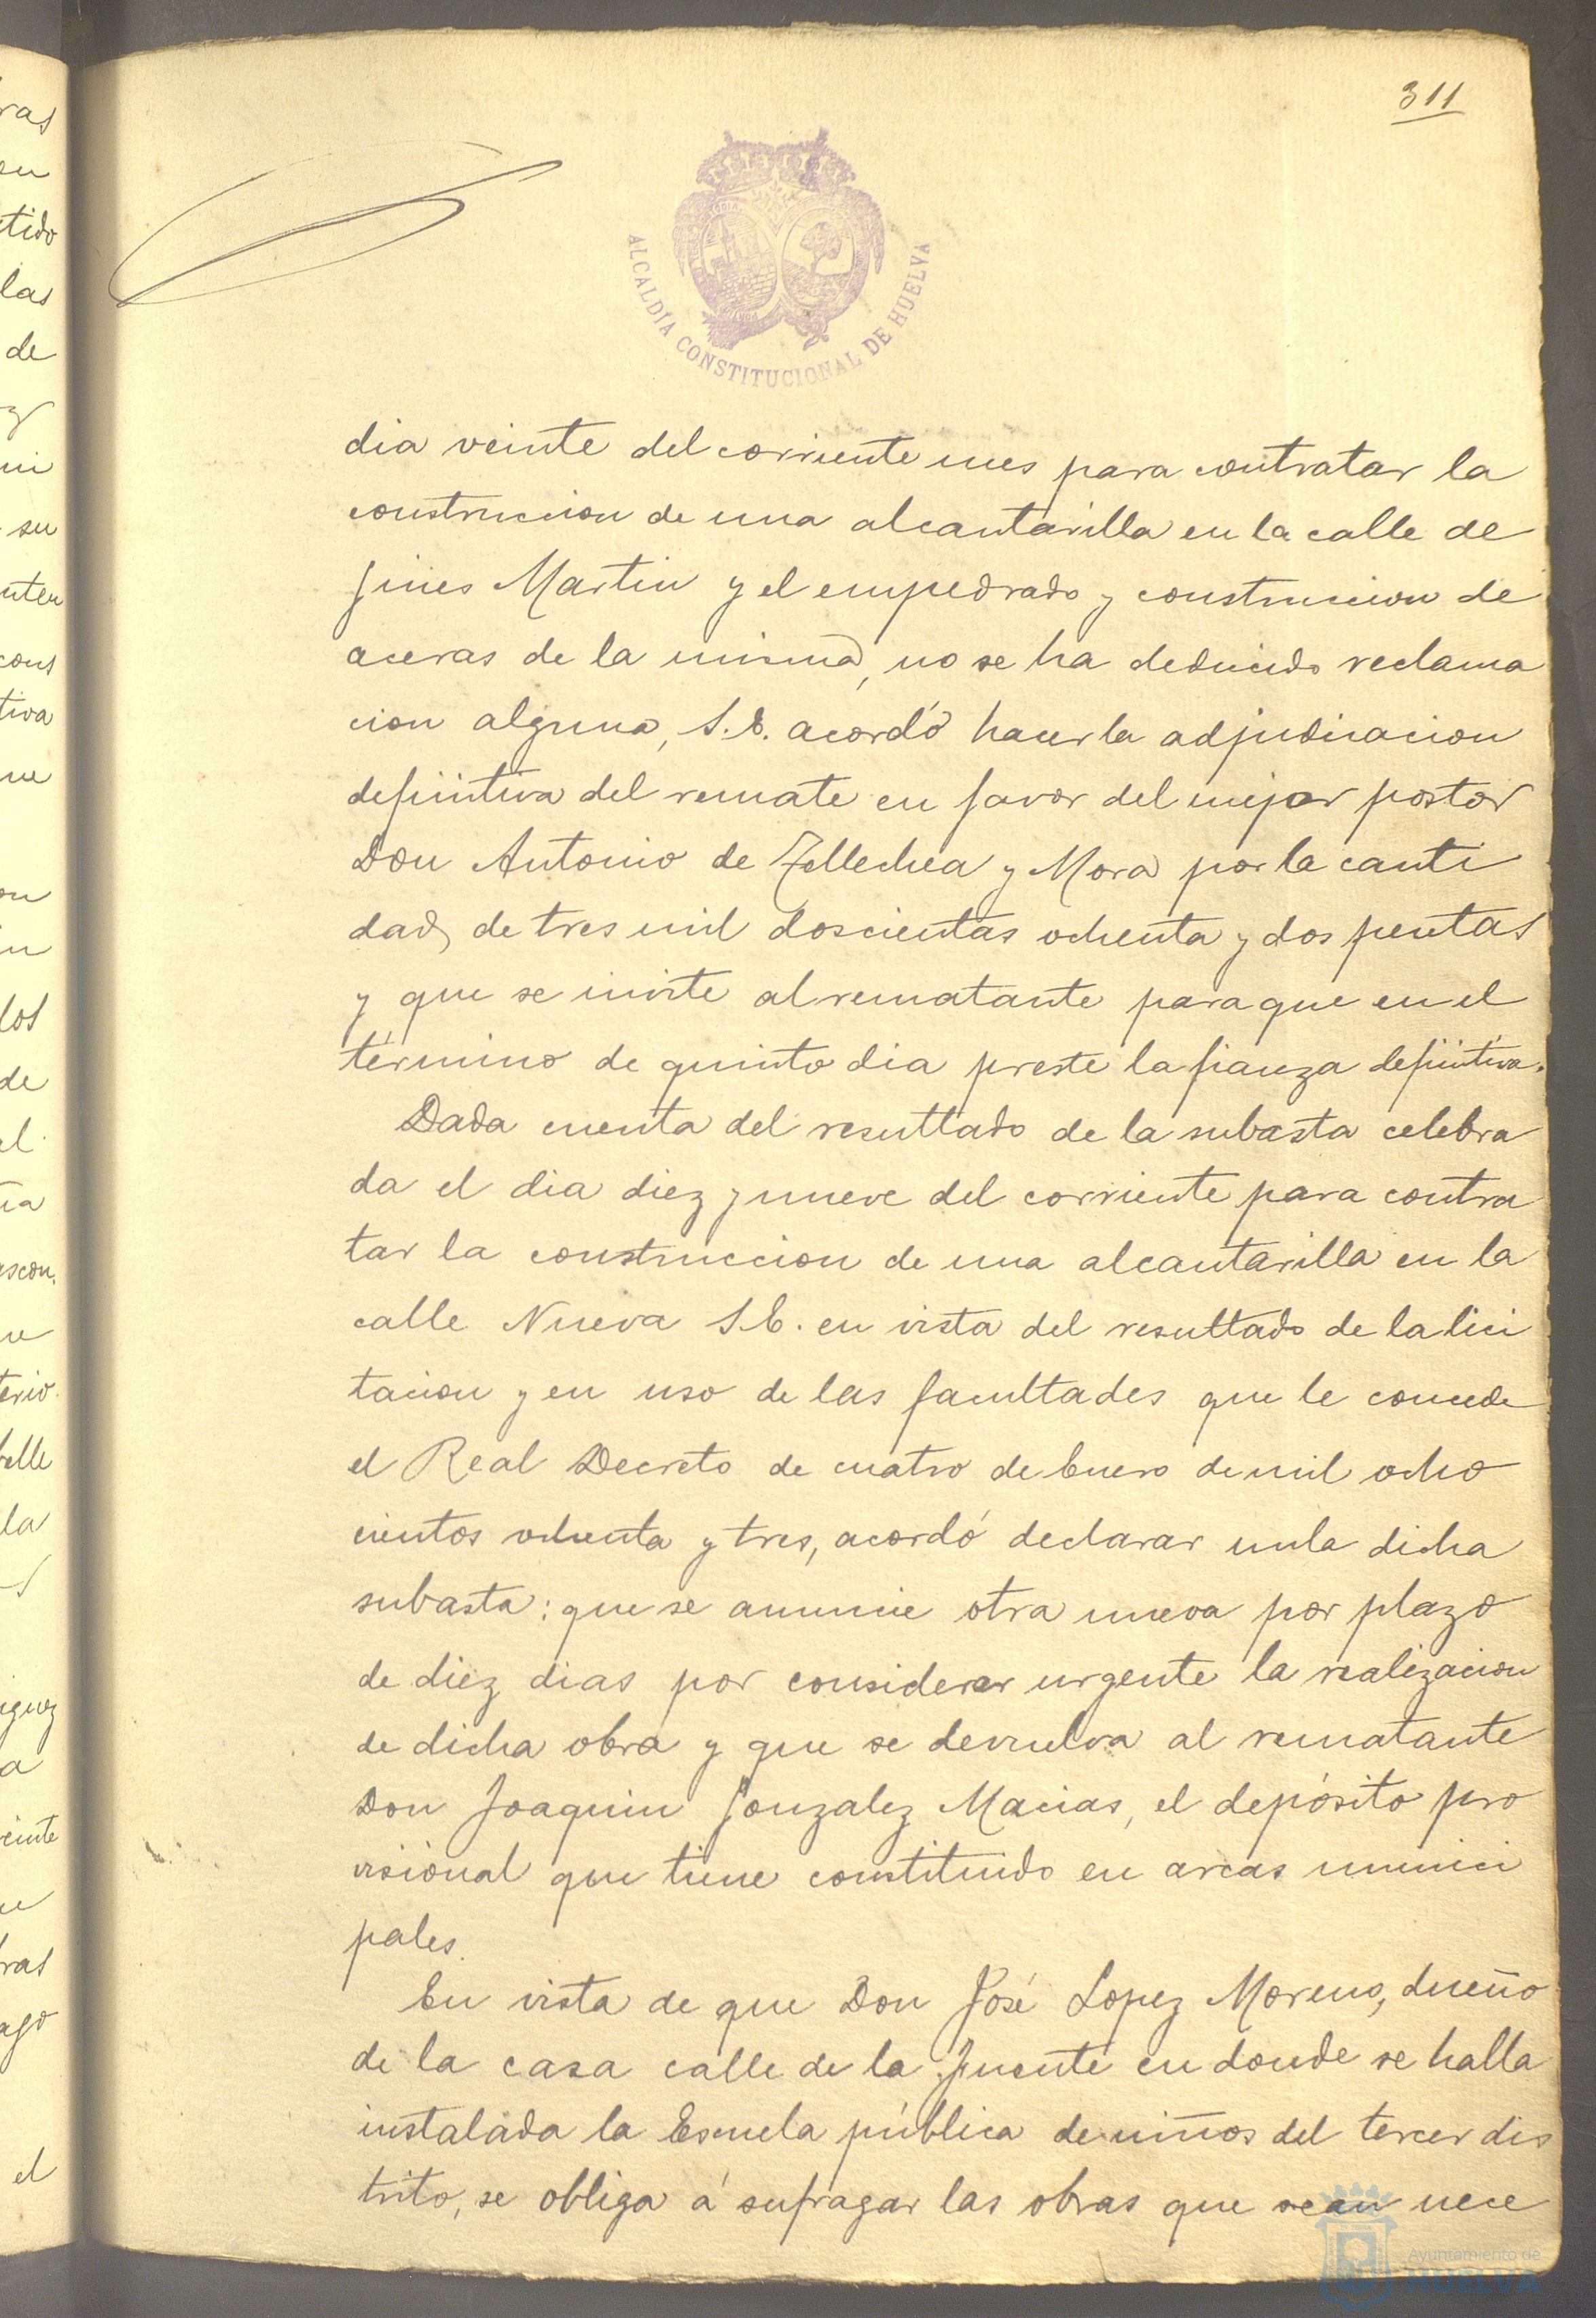 311
ALCALDÍA CONSTITUCIONAL DE HUELVA
dia veinte del corriente mes para contratar la
construccion de una alcantarilla en la calle de
Jines Martin y el empedrado y construccion de
aceras de la misma, no se ha deducido reclama
cion alguna, S.E. acordó hacer la adjudicacion
definitiva del remate en favor del mejor postor
Don Antonio de Tellechea y Mora por la canti
dad de tres mil doscientas ochenta y dos pesetas
y que se invite al rematante para que en el
término de quinto dia preste la fianza definitiva.
Dada cuenta del resultado de la subasta celebra
da el dia diez y nueve del corriente para contra
tar la construccion de una alcantarilla en la
calle Nueva S.E. en vista del resultado de la lici
tacion y en uso de las facultades que le concede
el Real Decreto de cuatro de Enero de mil ocho
cientos ochenta y tres, acordó declarar nula dicha
subasta: que se anuncie otra nueva por plazo
de diez dias por considerar urgente la realizacion
de dicha obra y que se devuelva al rematante
Don Joaquin Gonzalez Macias, el depósito pro
visional que tiene constituido en arcas munici
pales.
En vista de que Don José Lopez Moreno, dueño
de la casa calle de la Fuente en donde se halla
instalada la Escuela pública de niños del tercer dis
trito, se obliga á sufragar las obras que sean nece
Ayuntamiento de
HUELVA